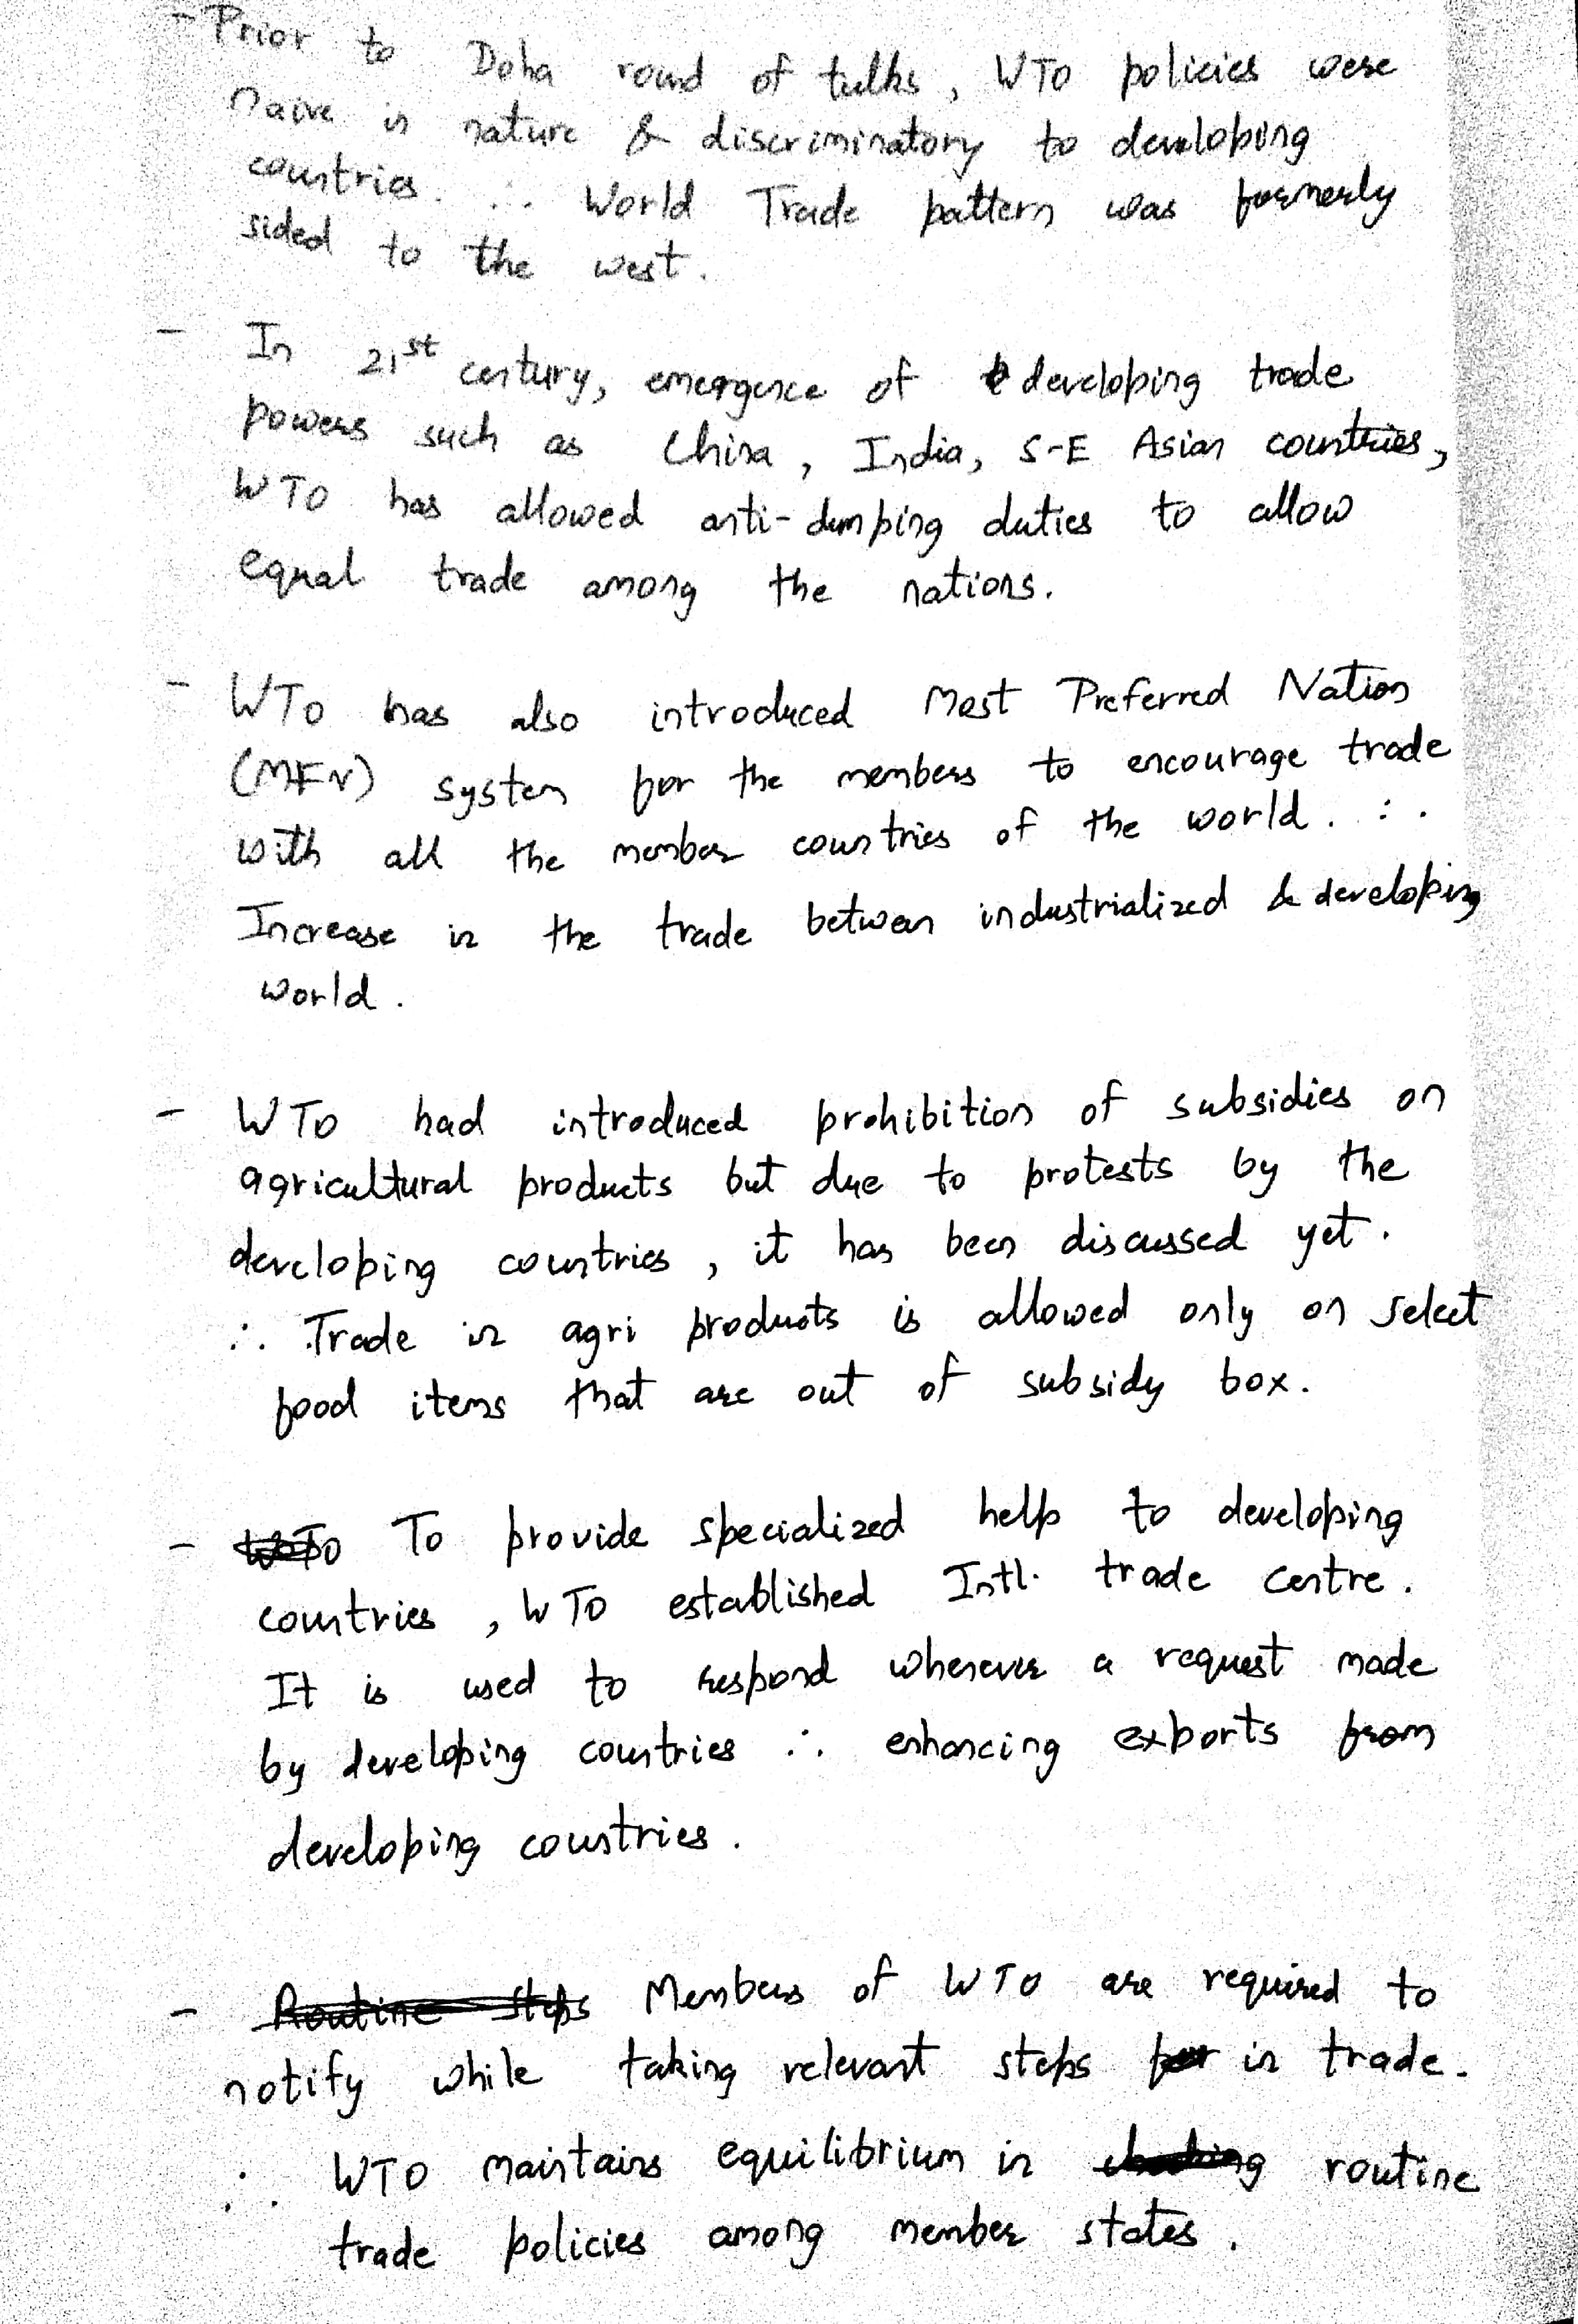 - Prior to Doha round of talks, WTO policies were
naive in nature & discriminatory to developing
countries. ∴ World Trade pattern was formerly
sided to the west.
- In 21st century, emergence of developing trade
powers such as China, India, S-E Asian countries,
WTO has allowed anti-dumping duties to allow
equal trade among the nations.
- WTO has also introduced Most Preferred Nation
(MFN) system for the members to encourage trade
with all the member countries of the world. ∴
Increase in the trade between industrialized & developing
world.
- WTO had introduced prohibition of subsidies on
agricultural products but due to protests by the
developing countries, it has been discussed yet.
∴ Trade in agri products is allowed only on select
food items that are out of subsidy box.
- To provide specialized help to developing
countries, WTO established Intl. trade centre.
It is used to respond whenever a request made
by developing countries ∴ enhancing exports from
developing countries.
- Routine steps Members of WTO are required to
notify while taking relevant steps for in trade.
∴ WTO maintains equilibrium in routine
trade policies among member states.